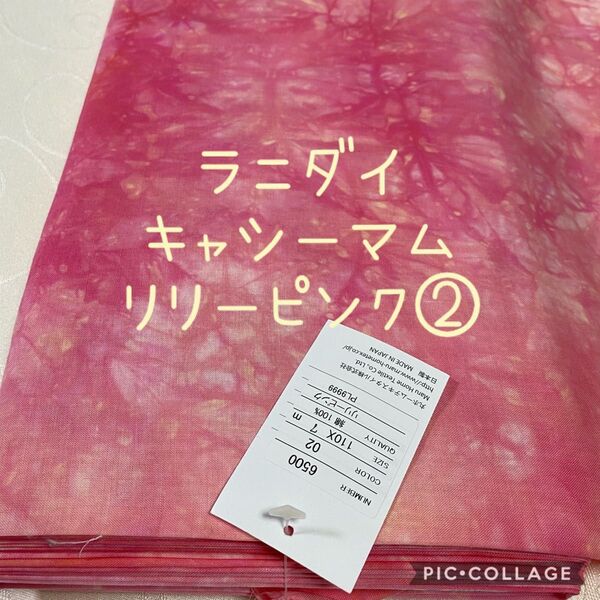 ラニダイ
キャシーマム
リリーピンク②
NUMBER
6500
COLOR
02
SIZE
110X 7 m
QUALITY
綿 100%
リリーピンク
PL9999
丸ホームテキスタイル株式会社
Maru Home Textile Co.,Ltd.
http://www.maru-hometex.co.jp/
MADE IN JAPAN
日本製
PIC•COLLAGE